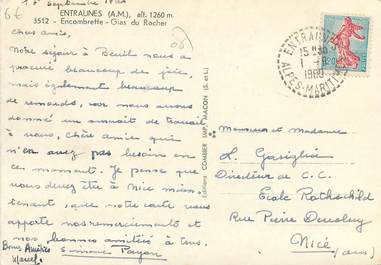 6€
1er Septembre
ENTRAUNES (A.M.), alt. 1260 m.
3512 - Encombrette - Gias du Rocher
Chers amis,
Notre séjour à Beuil nous a
procuré beaucoup de joies,
mais également beaucoup
de remords, car nous avons
donné un surcroît de travail
à vous, chère amie qui
n'en avez pas besoin en
ces moment. Je pense que
vous devez être à Nice main-
tenant, que notre carte vous
apporte nos remerciements et
nos bonnes amitiés à tous.
Bons Amitiés
Marcel
Simone Fayon
Editions COMBIER IMP. MACON (S. et L.)
ENTRAUNES
15 H 30
1 - 9
1960
ALPES-MARITIMES
0,20
Monsieur et Madame
L. Garsiglia
Directeur de C. C.
Ecole Rothschild
Rue Pierre Devoluy
Nice
(A.M.)